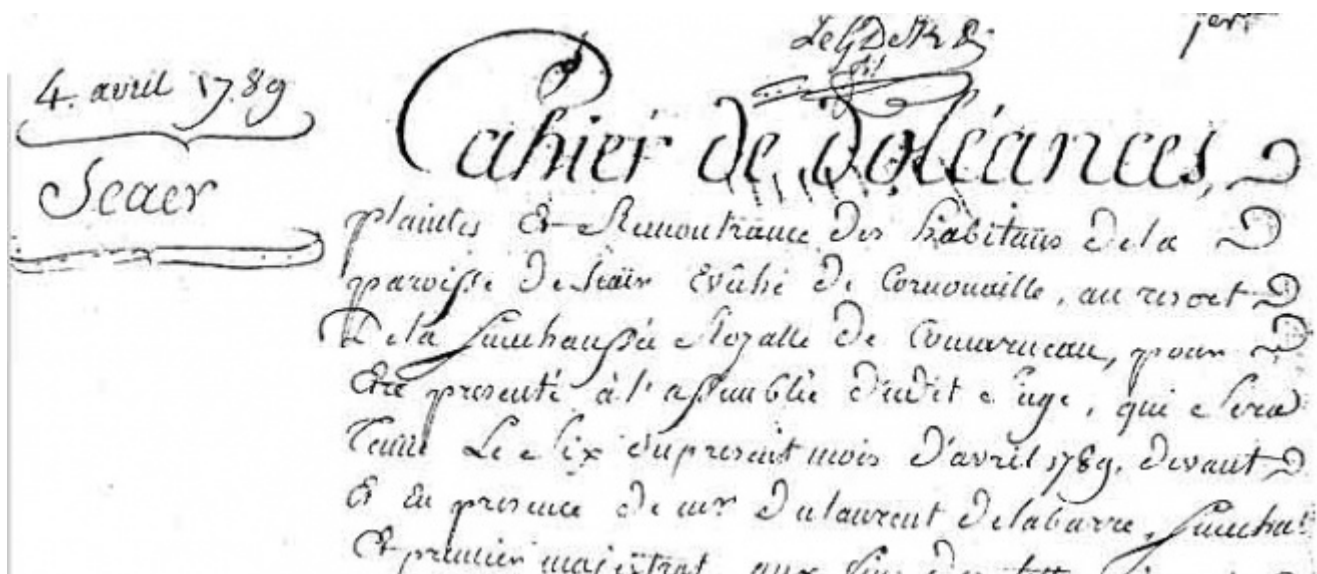 4. avril 1789
Scaer
Cahier de Doléances,
plaintes Et Remontrance des habitans de la
paroisse de Scaër Evêché de Cornouaille, au resort
De la Sénéchaussée Royalle de Concarneau, pour
Etre presenté à l'assemblée dudit siege, qui sera
Tenuë Le Six du present mois d'avril 1789. devant
Et En presence de mr Dulaurent Delabarre, Senechal
Et premier majistrat, aux fins